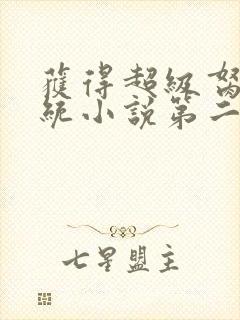 獲得超級
統小說第二
七星盟主